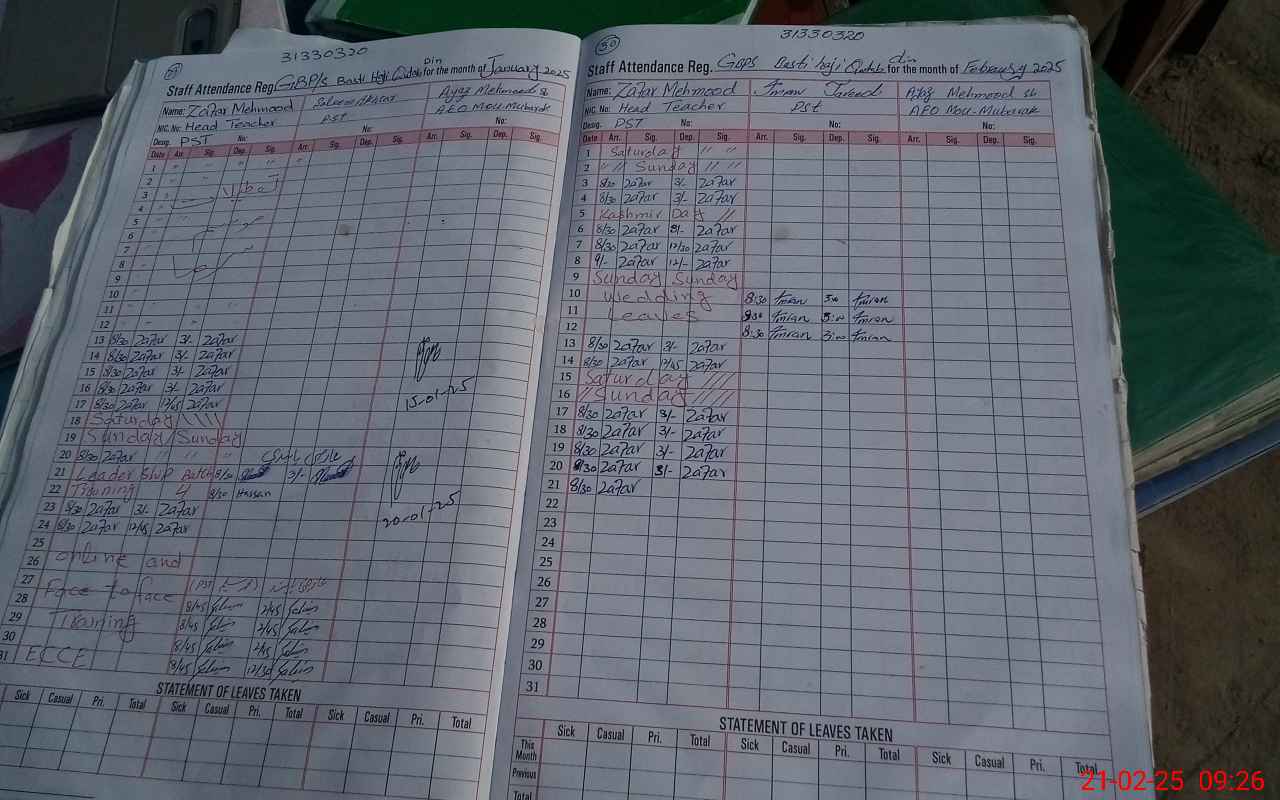 31330320
Staff Attendance Reg. GBP/s Basti Haji Qutab din for the month of January 2025
Name: Zafar Mehmood Saleem Akhtar Ayaz Mehmood sb
NIC. No: Head Teacher PST AEO Mou-Mubarak
Desig. PST No: No: No:
Date Arr. Sig. Dep. Sig. Arr. Sig. Dep. Sig. Arr. Sig. Dep. Sig.
1
2
3
4
5
6
7
8
9
10
11
12
13 8/30 Zafar 3/- Zafar
14 8/30 Zafar 3/- Zafar
15 8/30 Zafar 3/- Zafar 15-01-25
16 8/30 Zafar 3/- Zafar
17 8/30 Zafar 12/45 Zafar
18 Saturday
19 Sunday Sunday
20 8/30 Zafar
21 Leader Batch 8/30 3/-
22 Training 4 8/30 Hassan 20-01-25
23 8/30 Zafar 3/- Zafar
24 8/30 Zafar 12/45 Zafar
25
26 online and
27
28 Face to face 8/45 Salim 2/45 Salim
29 Training 8/45 Salim 2/45 Salim
30 8/45 Salim 2/45 Salim
31 ECCE 8/45 Salim 12/30 Salim
STATEMENT OF LEAVES TAKEN
Sick Casual Pri. Total Sick Casual Pri. Total Sick Casual Pri. Total
30
31330320
Staff Attendance Reg. GBPS Basti haji Qutab din for the month of February 2025
Name: Zafar Mehmood Imran Javeed Ayaz Mehmood sb
NIC. No: Head Teacher Pst AEO Mou-Mubarak
Desig. PST No: No: No:
Date Arr. Sig. Dep. Sig. Arr. Sig. Dep. Sig. Arr. Sig. Dep. Sig.
1 Saturday // //
2 // // Sunday // //
3 8/30 Zafar 3/- Zafar
4 8/30 Zafar 3/- Zafar
5 Kashmir Day //
6 8/30 Zafar 3/- Zafar
7 8/30 Zafar 12/30 Zafar
8 9/- Zafar 12/- Zafar
9 Sunday Sunday
10 Wedding 8:30 Imran 3:00 Imran
11 Leaves 8:30 Imran 3:00 Imran
12 8:30 Imran 3:00 Imran
13 8/30 Zafar 3/- Zafar
14 8/30 Zafar 12/45 Zafar
15 Saturday ////
16 // Sunday ////
17 8/30 Zafar 3/- Zafar
18 8/30 Zafar 3/- Zafar
19 8/30 Zafar 3/- Zafar
20 8/30 Zafar 3/- Zafar
21 8/30 Zafar
22
23
24
25
26
27
28
29
30
31
STATEMENT OF LEAVES TAKEN
Sick Casual Pri. Total Sick Casual Pri. Total Sick Casual Pri. Total
This Month
Previous
Total
21-02-25 09:26